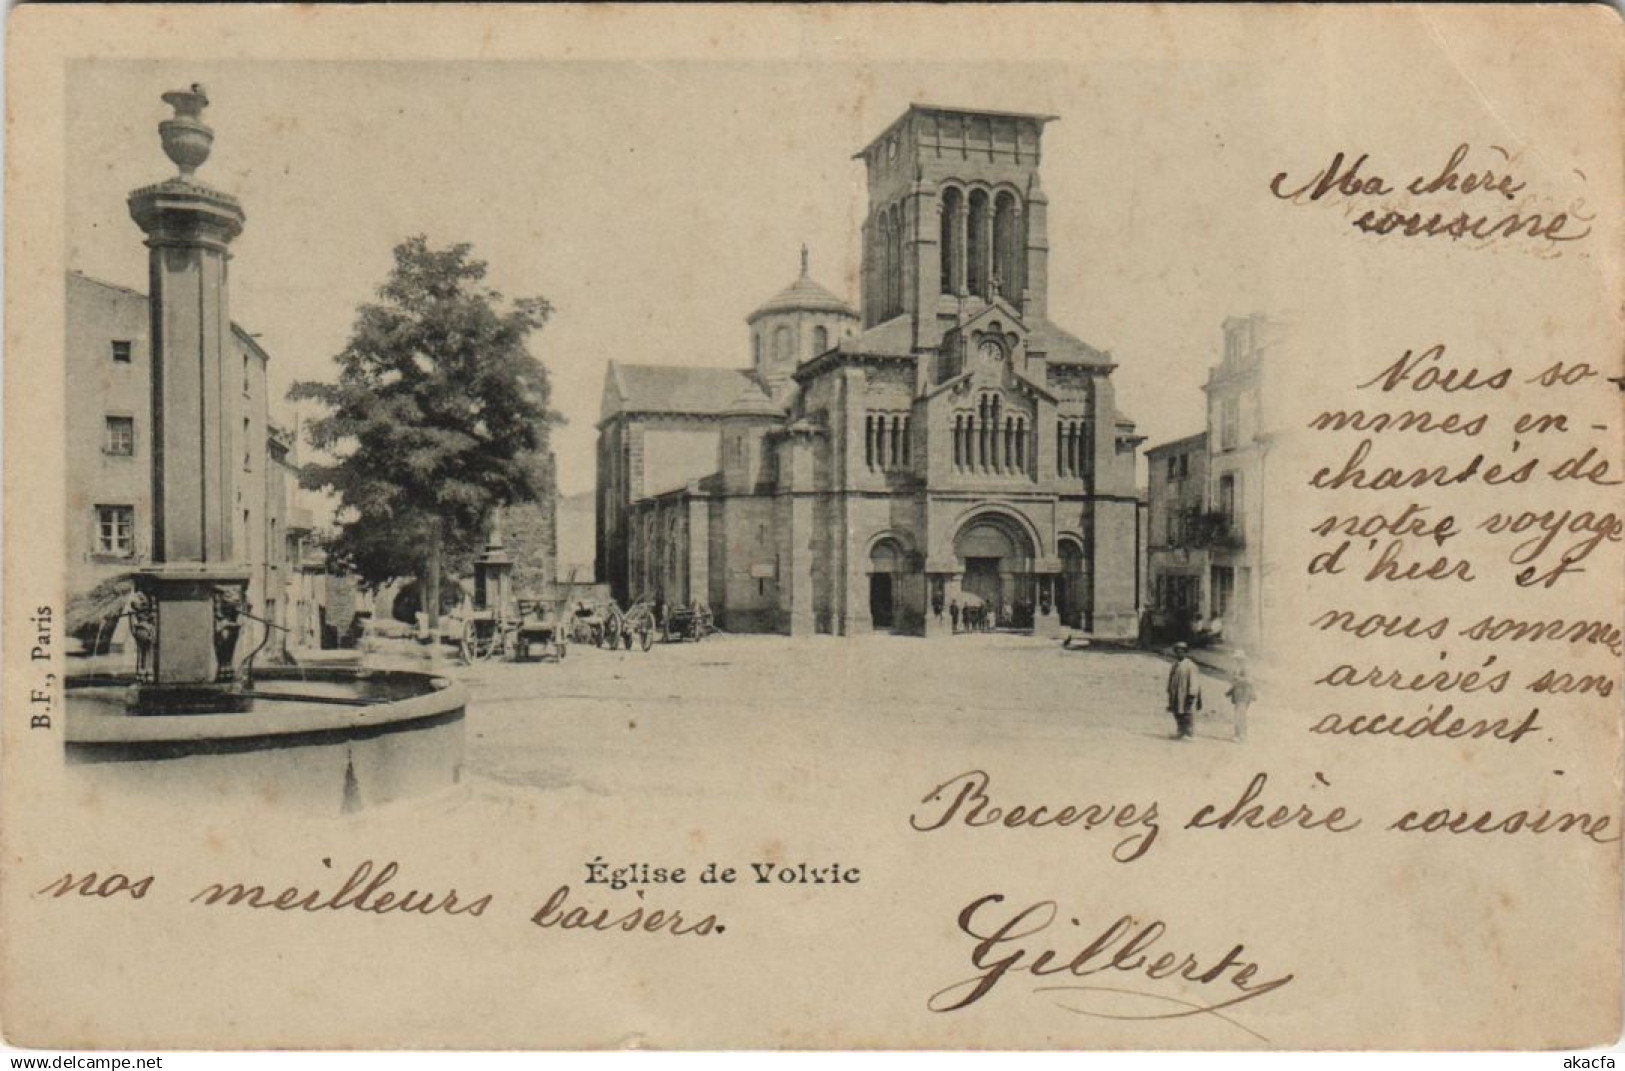 Ma chère
cousine
Nous so-
mmes en-
chantés de
notre voyage
d'hier et
nous sommes
arrivés sans
accident.
Recevez chère cousine
nos meilleurs baisers.
Gilberte
Église de Volvic
B.F., Paris
delcampe.net
akacfa